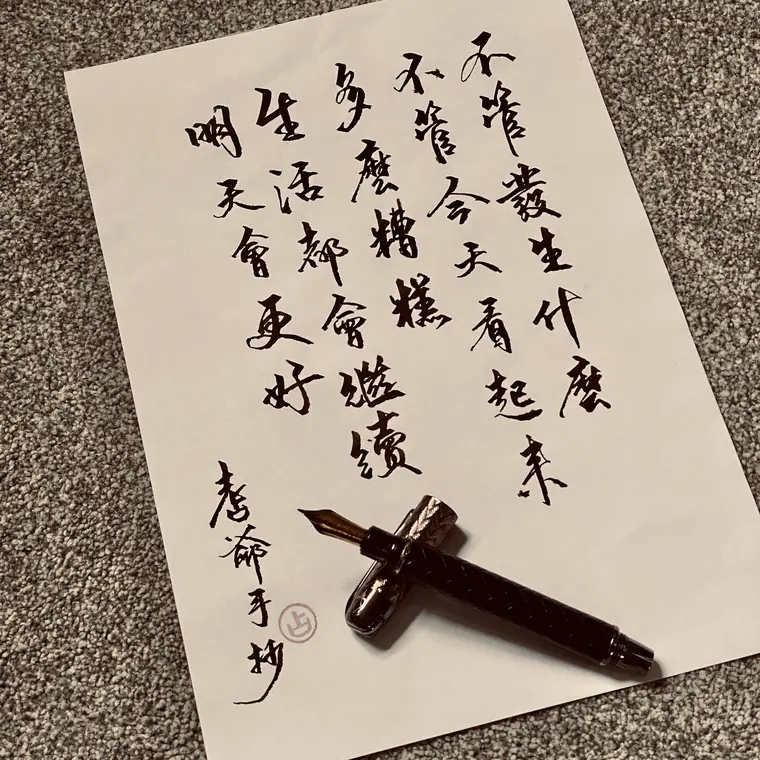 不管發生什麼
不管今天看起來
多麼糟糕
生活都會繼續
明天會更好
爺手抄